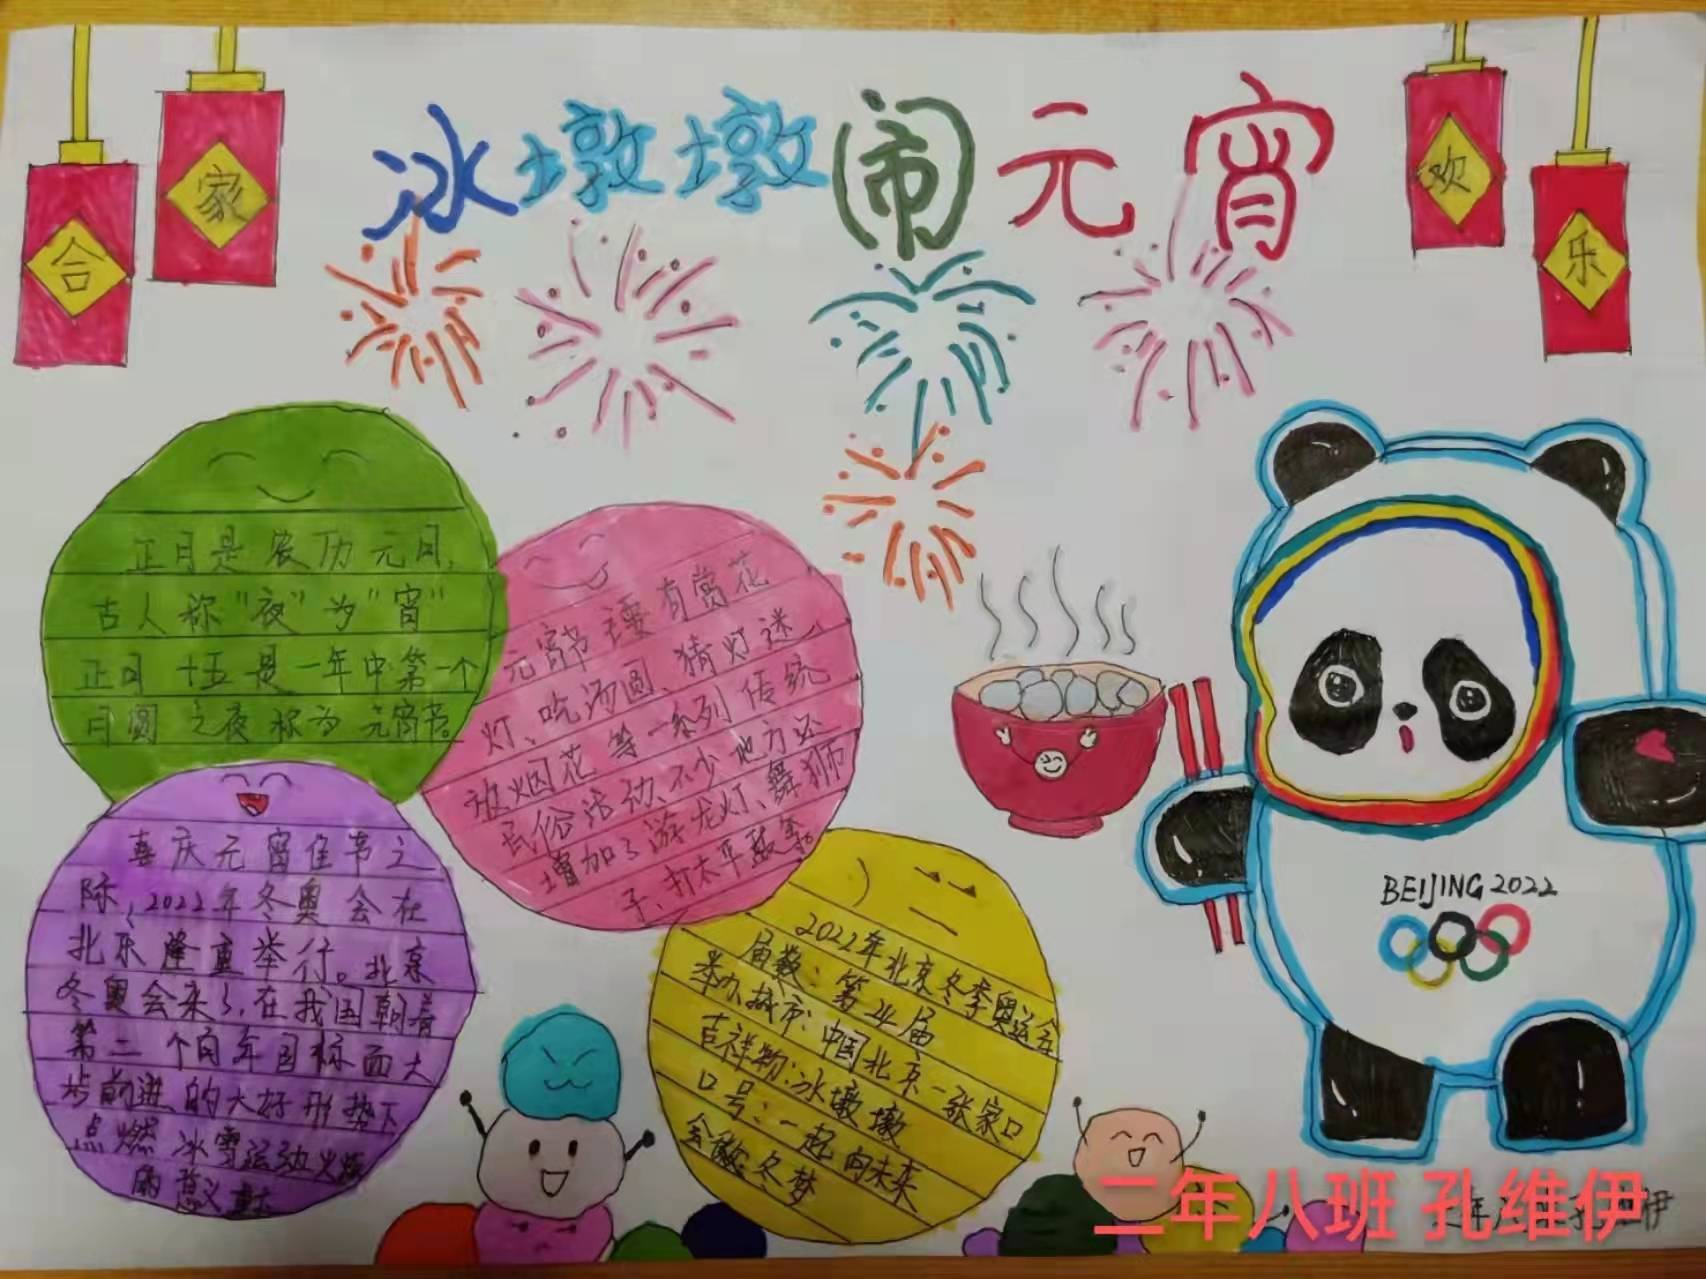 冰墩墩闹元宵
合
家
欢
乐
正月是农历元月,
古人称"夜"为"宵"
正月十五是一年中第一个
月圆之夜称为元宵节。
元宵节主要有赏花
灯、吃汤圆、猜灯迷、
放烟花等一系列传统
民俗活动不少地方还
增加了游龙灯、舞狮
子、打太平鼓等。
喜庆元宵佳节之
际、2022年冬奥会在
北京隆重举行。北京
冬奥会来了,在我国朝着
第二个百年目标面大
步前进的大好形势下
点燃冰雪运动火炬
的意义重大
2022年北京冬季奥运会
届数:第24届
举办城市:中国北京-张家口
吉祥物:冰墩墩
口号:一起向未来
会徽:冬梦
BEIJING 2022
二年八班 孔维伊